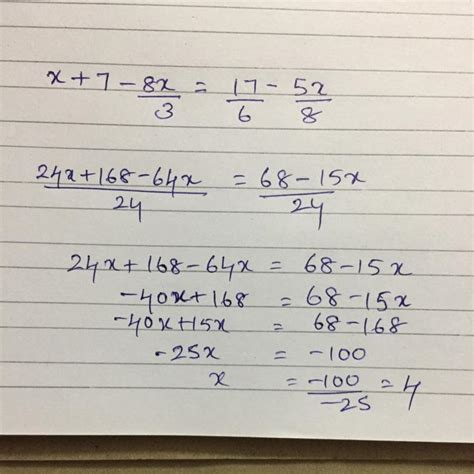 x + 7 - 8x/3 = 17/6 - 5x/8
(24x + 168 - 64x)/24 = (68 - 15x)/24
24x + 168 - 64x = 68 - 15x
-40x + 168 = 68 - 15x
-40x + 15x = 68 - 168
-25x = -100
x = -100/-25 = 4